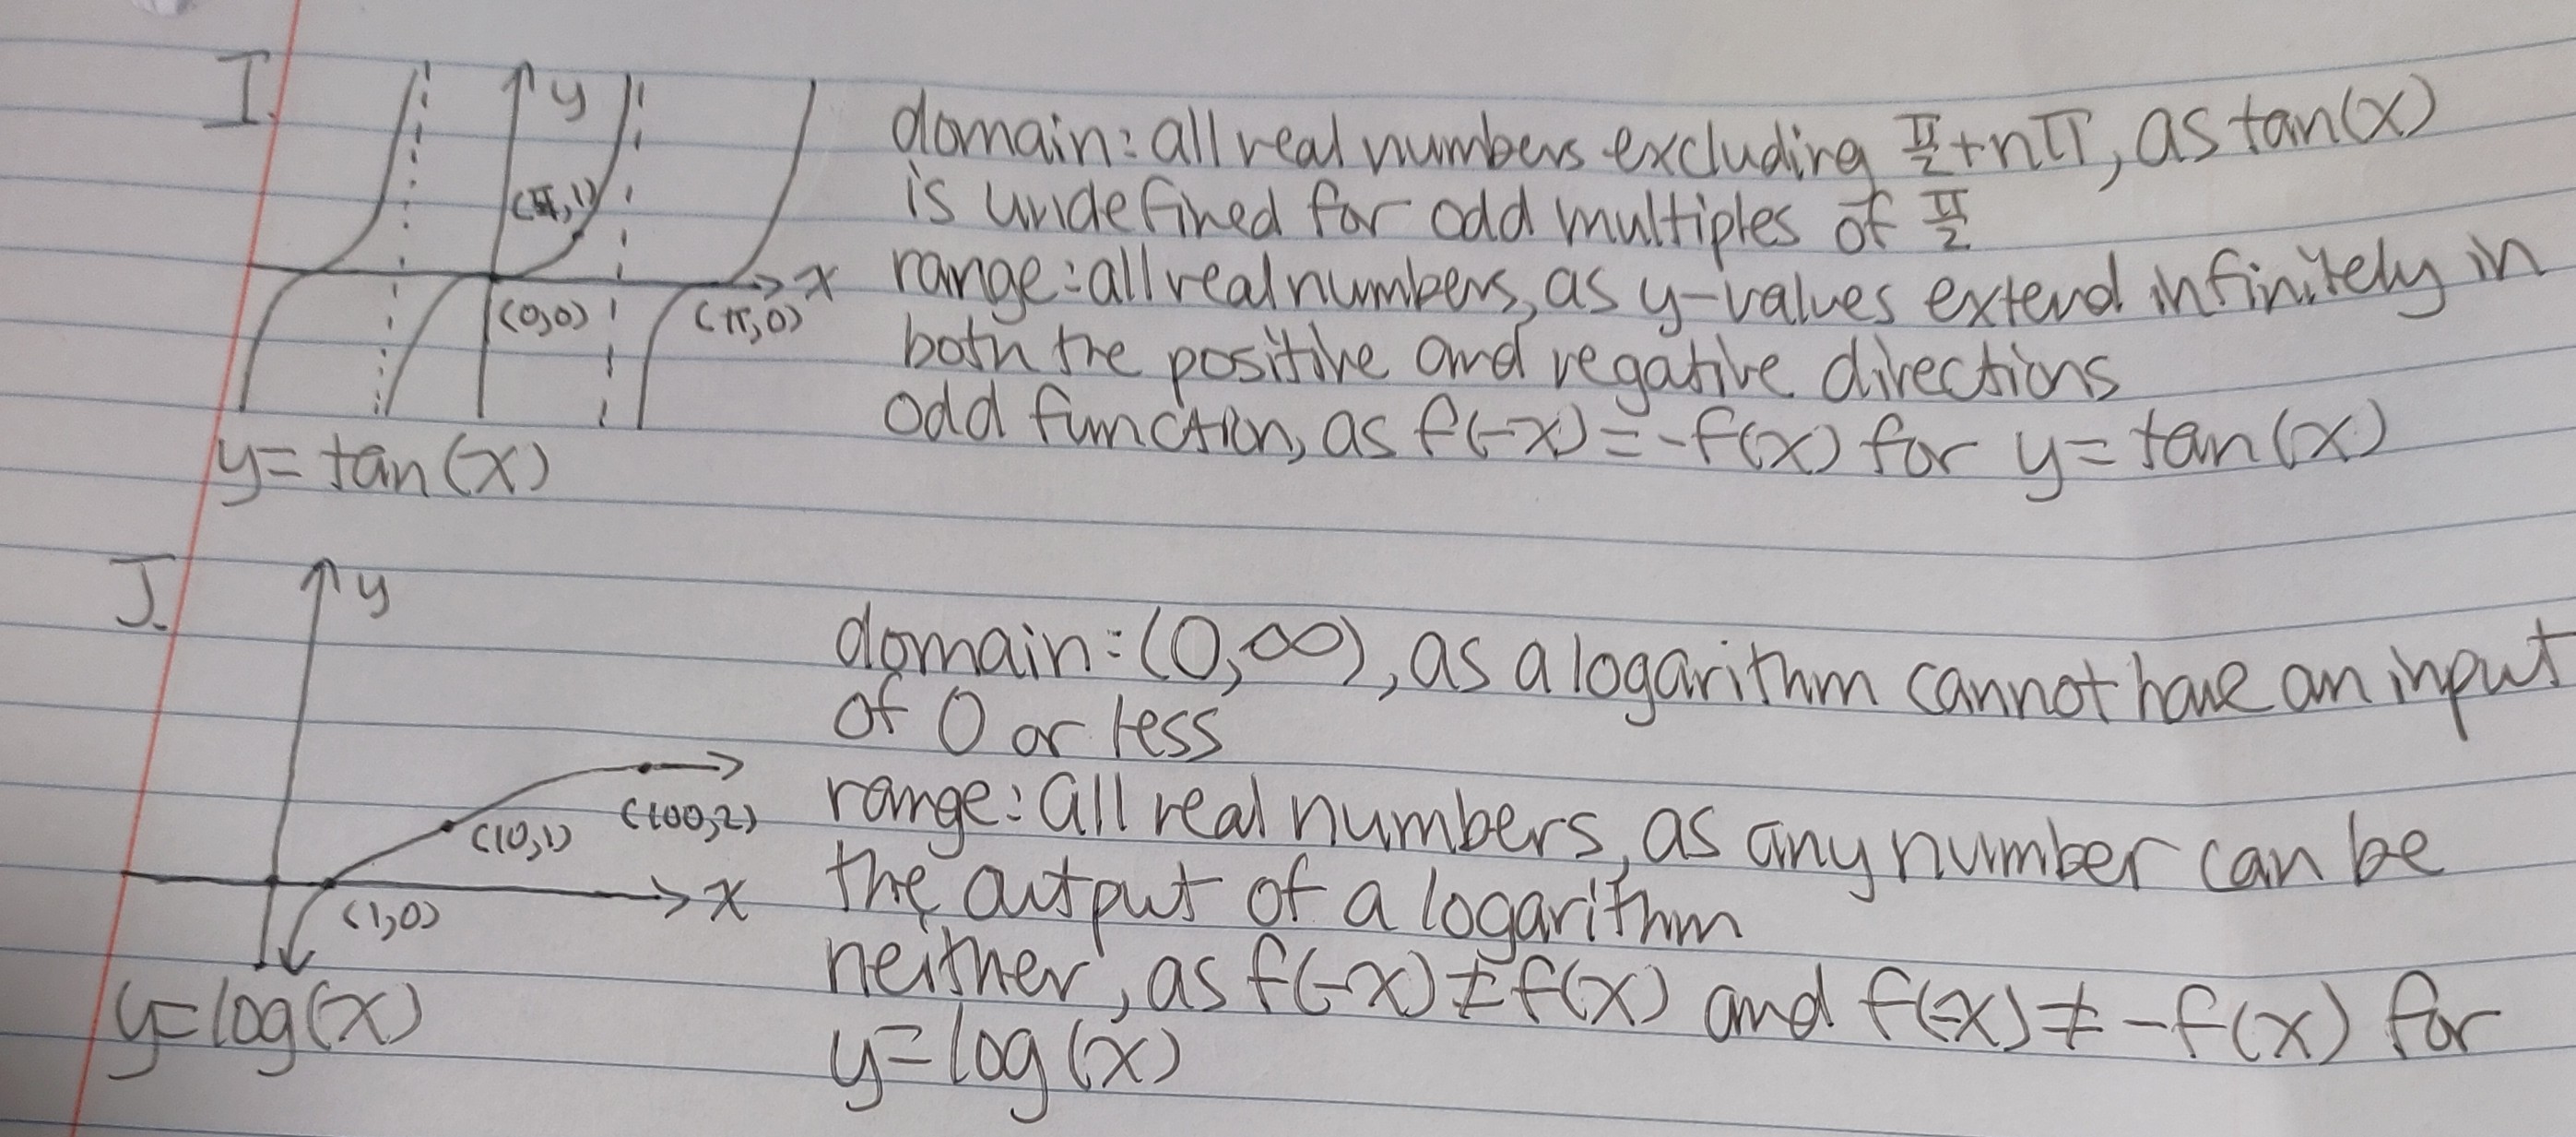 I.
y
(π/4,1)
x
(0,0)
(π,0)
y=tan(x)
domain: all real numbers excluding π/2+nπ, as tan(x)
is undefined for odd multiples of π/2
range: all real numbers, as y-values extend infinitely in
both the positive and negative directions
odd function, as f(-x)=-f(x) for y=tan(x)
J.
y
(10,1)
(100,2)
x
(1,0)
y=log(x)
domain: (0,∞), as a logarithm cannot have an input
of 0 or less
range: all real numbers, as any number can be
the output of a logarithm
neither, as f(-x)≠f(x) and f(-x)≠-f(x) for
y=log(x)